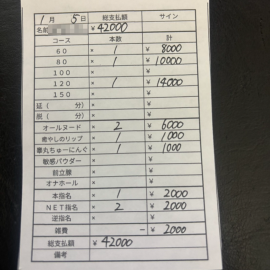 1月 5日 総支払額 サイン
名前 ¥42000
コース 本数 計
60 × 1 ¥ 8000
80 × 1 ¥ 10000
100 × ¥
120 × 1 ¥ 14000
150 × ¥
延(　分) ¥
(　分) ¥
オールヌード × 2 ¥ 6000
癒やしのリップ × 1 ¥ 1000
睾丸ちゅーにんぐ × 1 ¥ 1000
敏感パウダー × ¥
前立腺 × ¥
オナホール × ¥
本指名 × 1 ¥ 2000
NET指名 × 2 ¥ 2000
逆指名 × ¥
雑費 − ¥ 2000
総支払額 ¥ 42000
備考